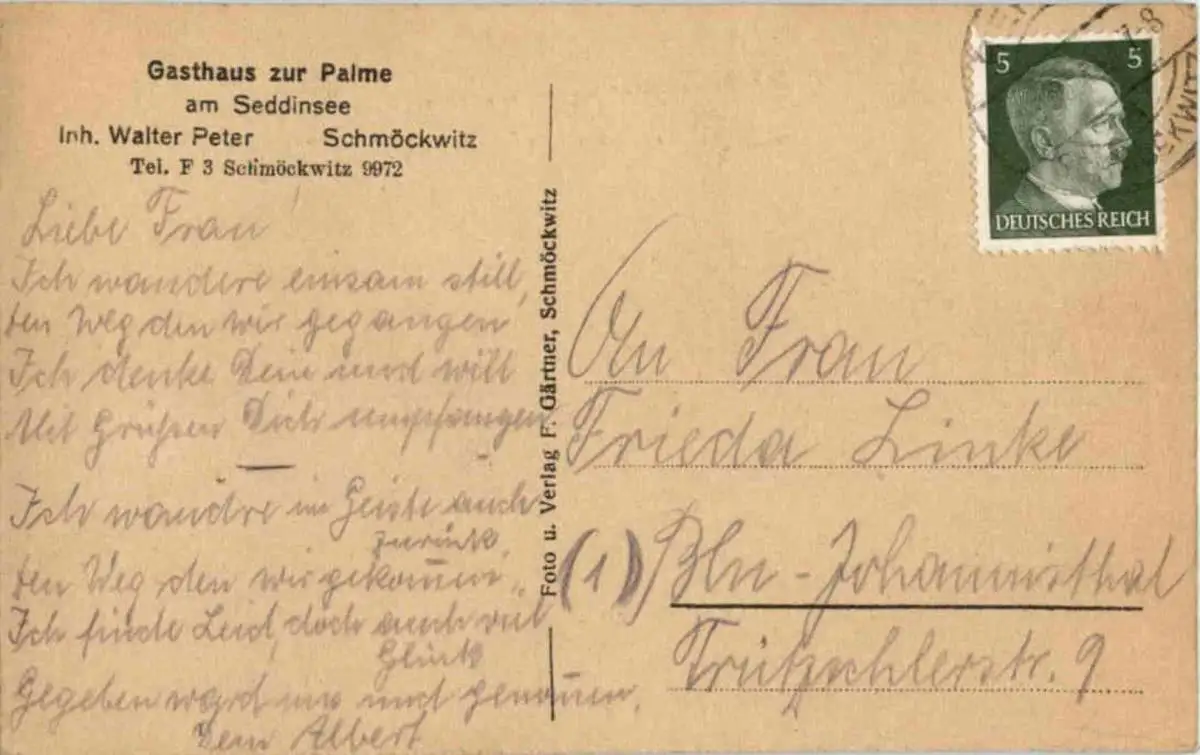 Gasthaus zur Palme
am Seddinsee
Inh. Walter Peter Schmöckwitz
Tel. F 3 Schmöckwitz 9972
Liebe Frau!
Ich wandere einsam still,
den Weg den wir gegangen
Ich denke Dein und will
Mit Grüßen Dich umpfangen
Ich wandre im Geiste auch
zurück,
den Weg den wir gekom̅en,
Ich finde Leid, doch auch viel
Glück
Gegeben ward uns und genom̅en.
Dein Albert
Foto u. Verlag F. Gärtner, Schmöckwitz
5 5
DEUTSCHES REICH
An Frau
Frieda Linke
(1) Bln - Johannisthal
Trützschlerstr. 9